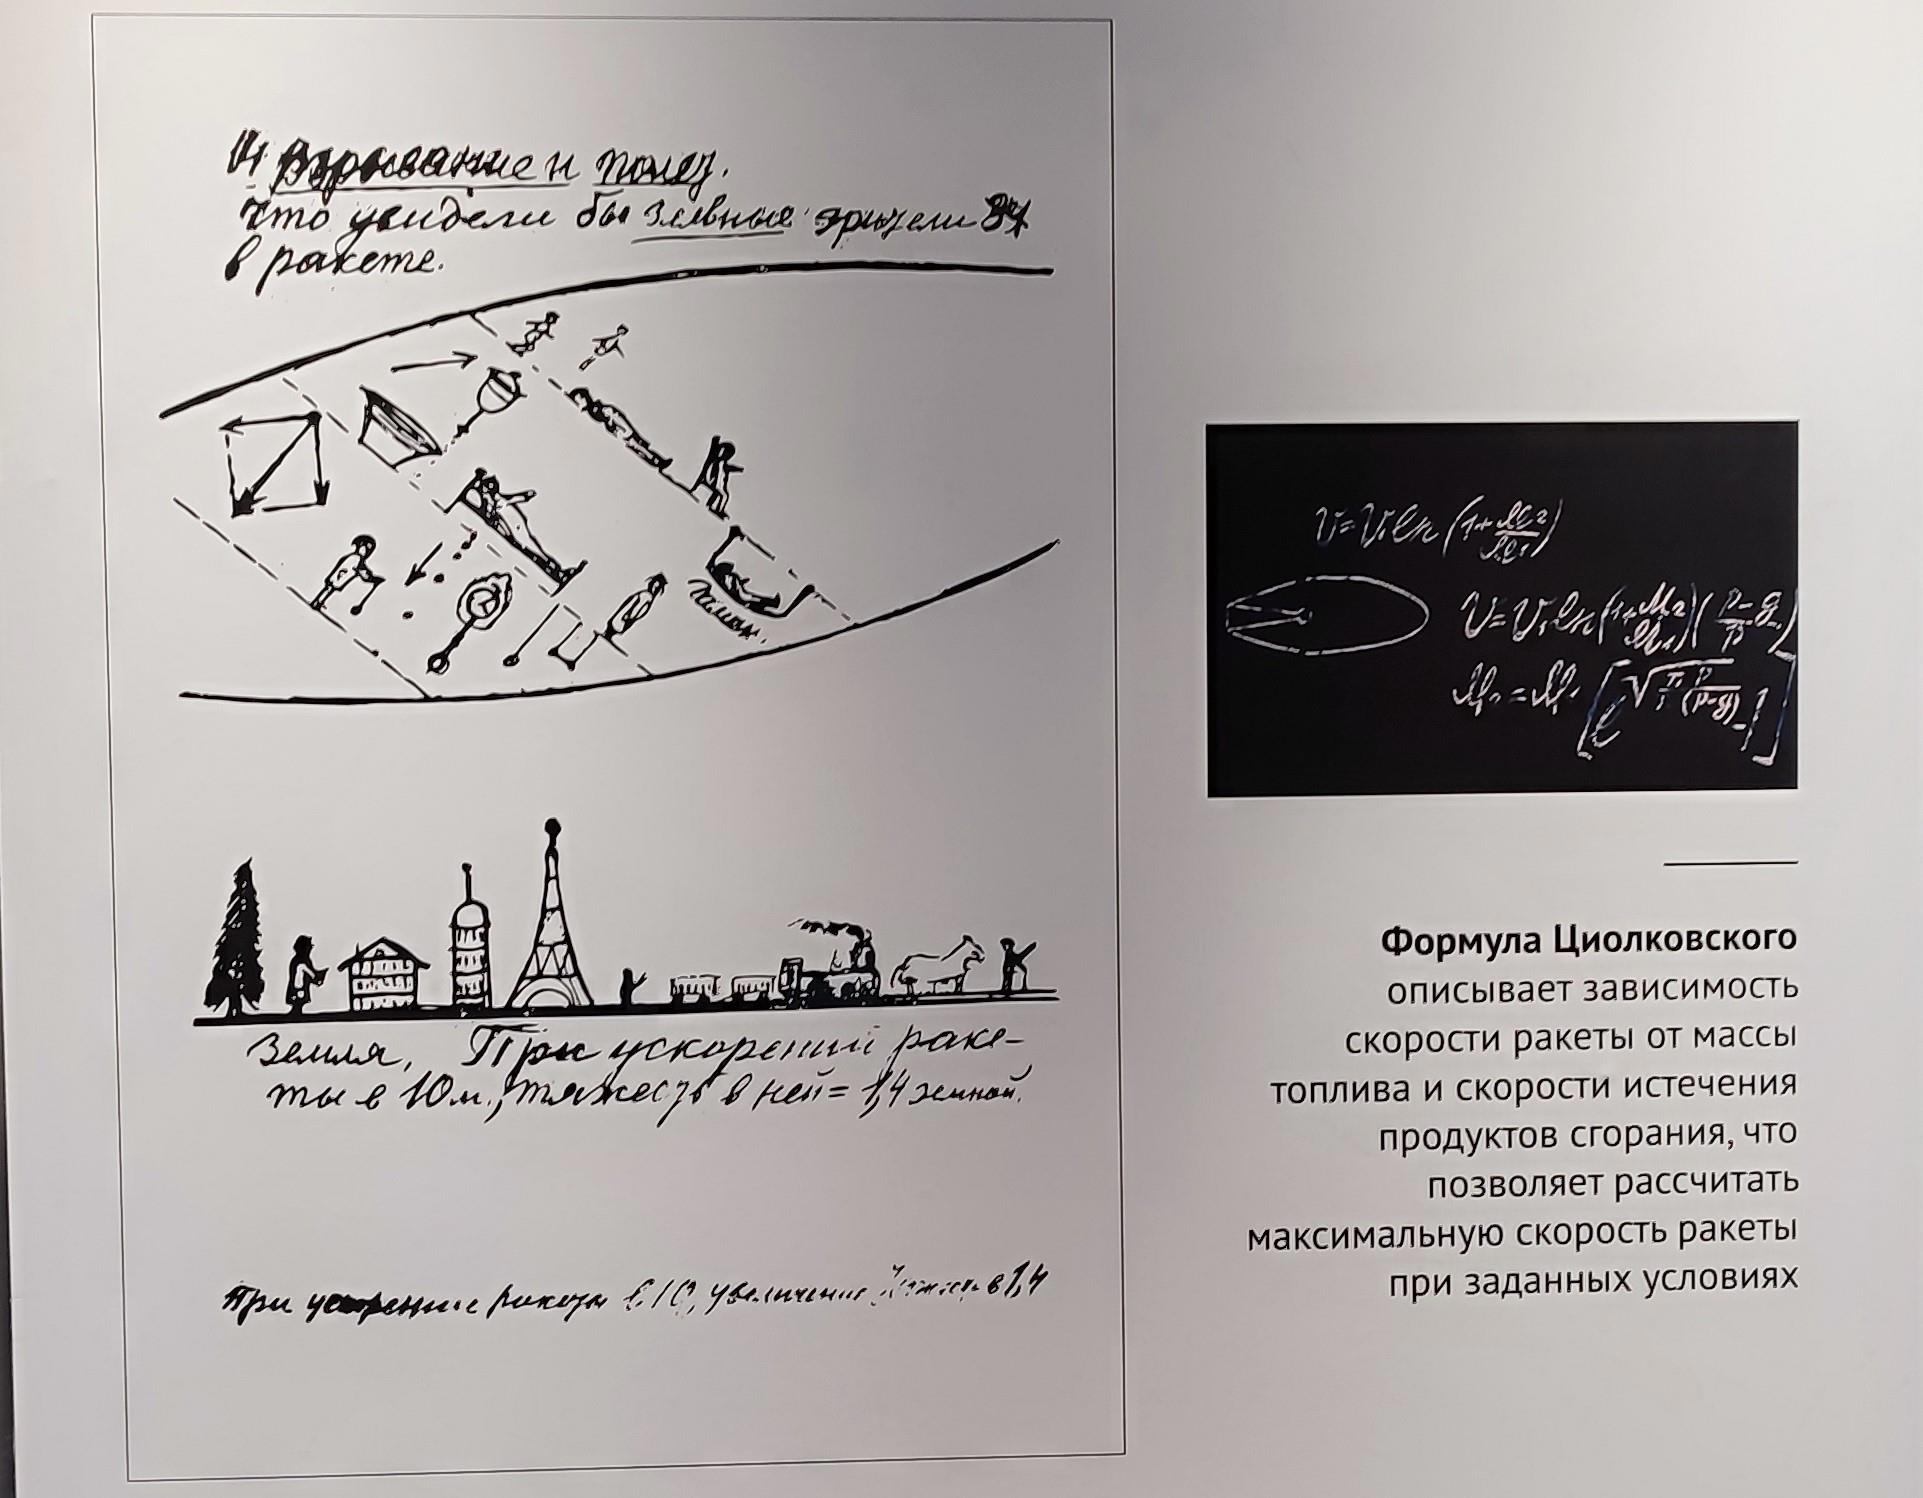 Взрывание и полет.
Что увидели бы земные зрители 37
в ракете.
Гамак.
Земля. При ускорении раке-
ты в 10м., тяжесть в ней = 1,4 земной.
При ускорение ракеты в 10, увеличение в 1,4
V=V₁ln(1+M₂/M₁)
V=V₁ln(1+M₂/M₁)(p-g/p)
Формула Циолковского
описывает зависимость
скорости ракеты от массы
топлива и скорости истечения
продуктов сгорания, что
позволяет рассчитать
максимальную скорость ракеты
при заданных условиях